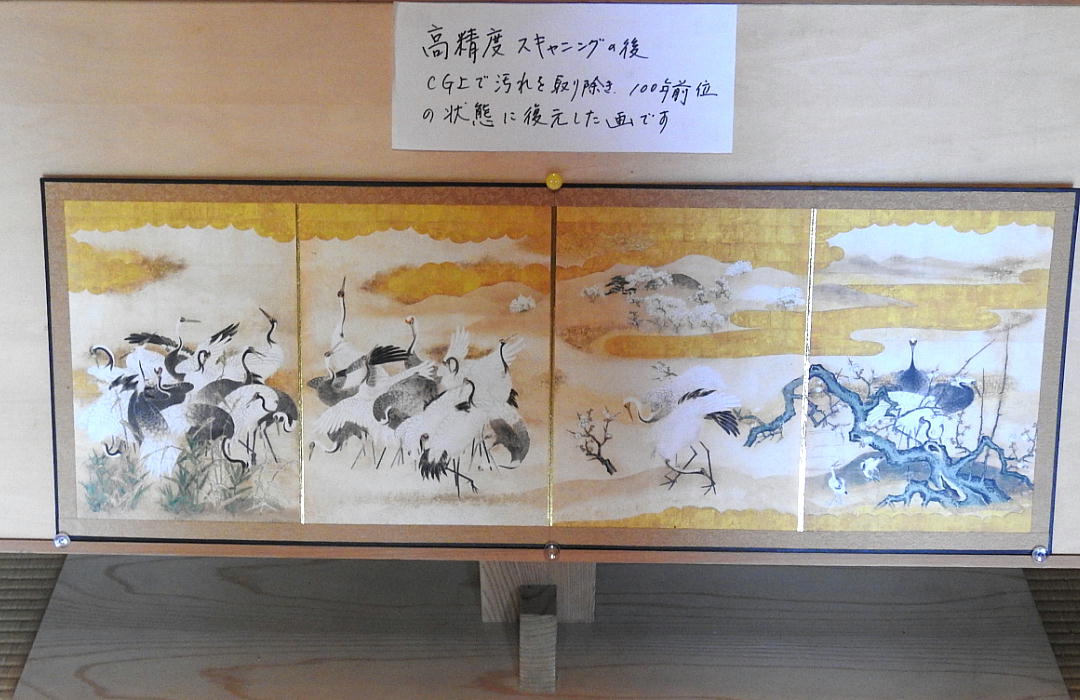 高精度スキャニングの後
CG上で汚れを取り除き 100年前位
の状態に復元した画です